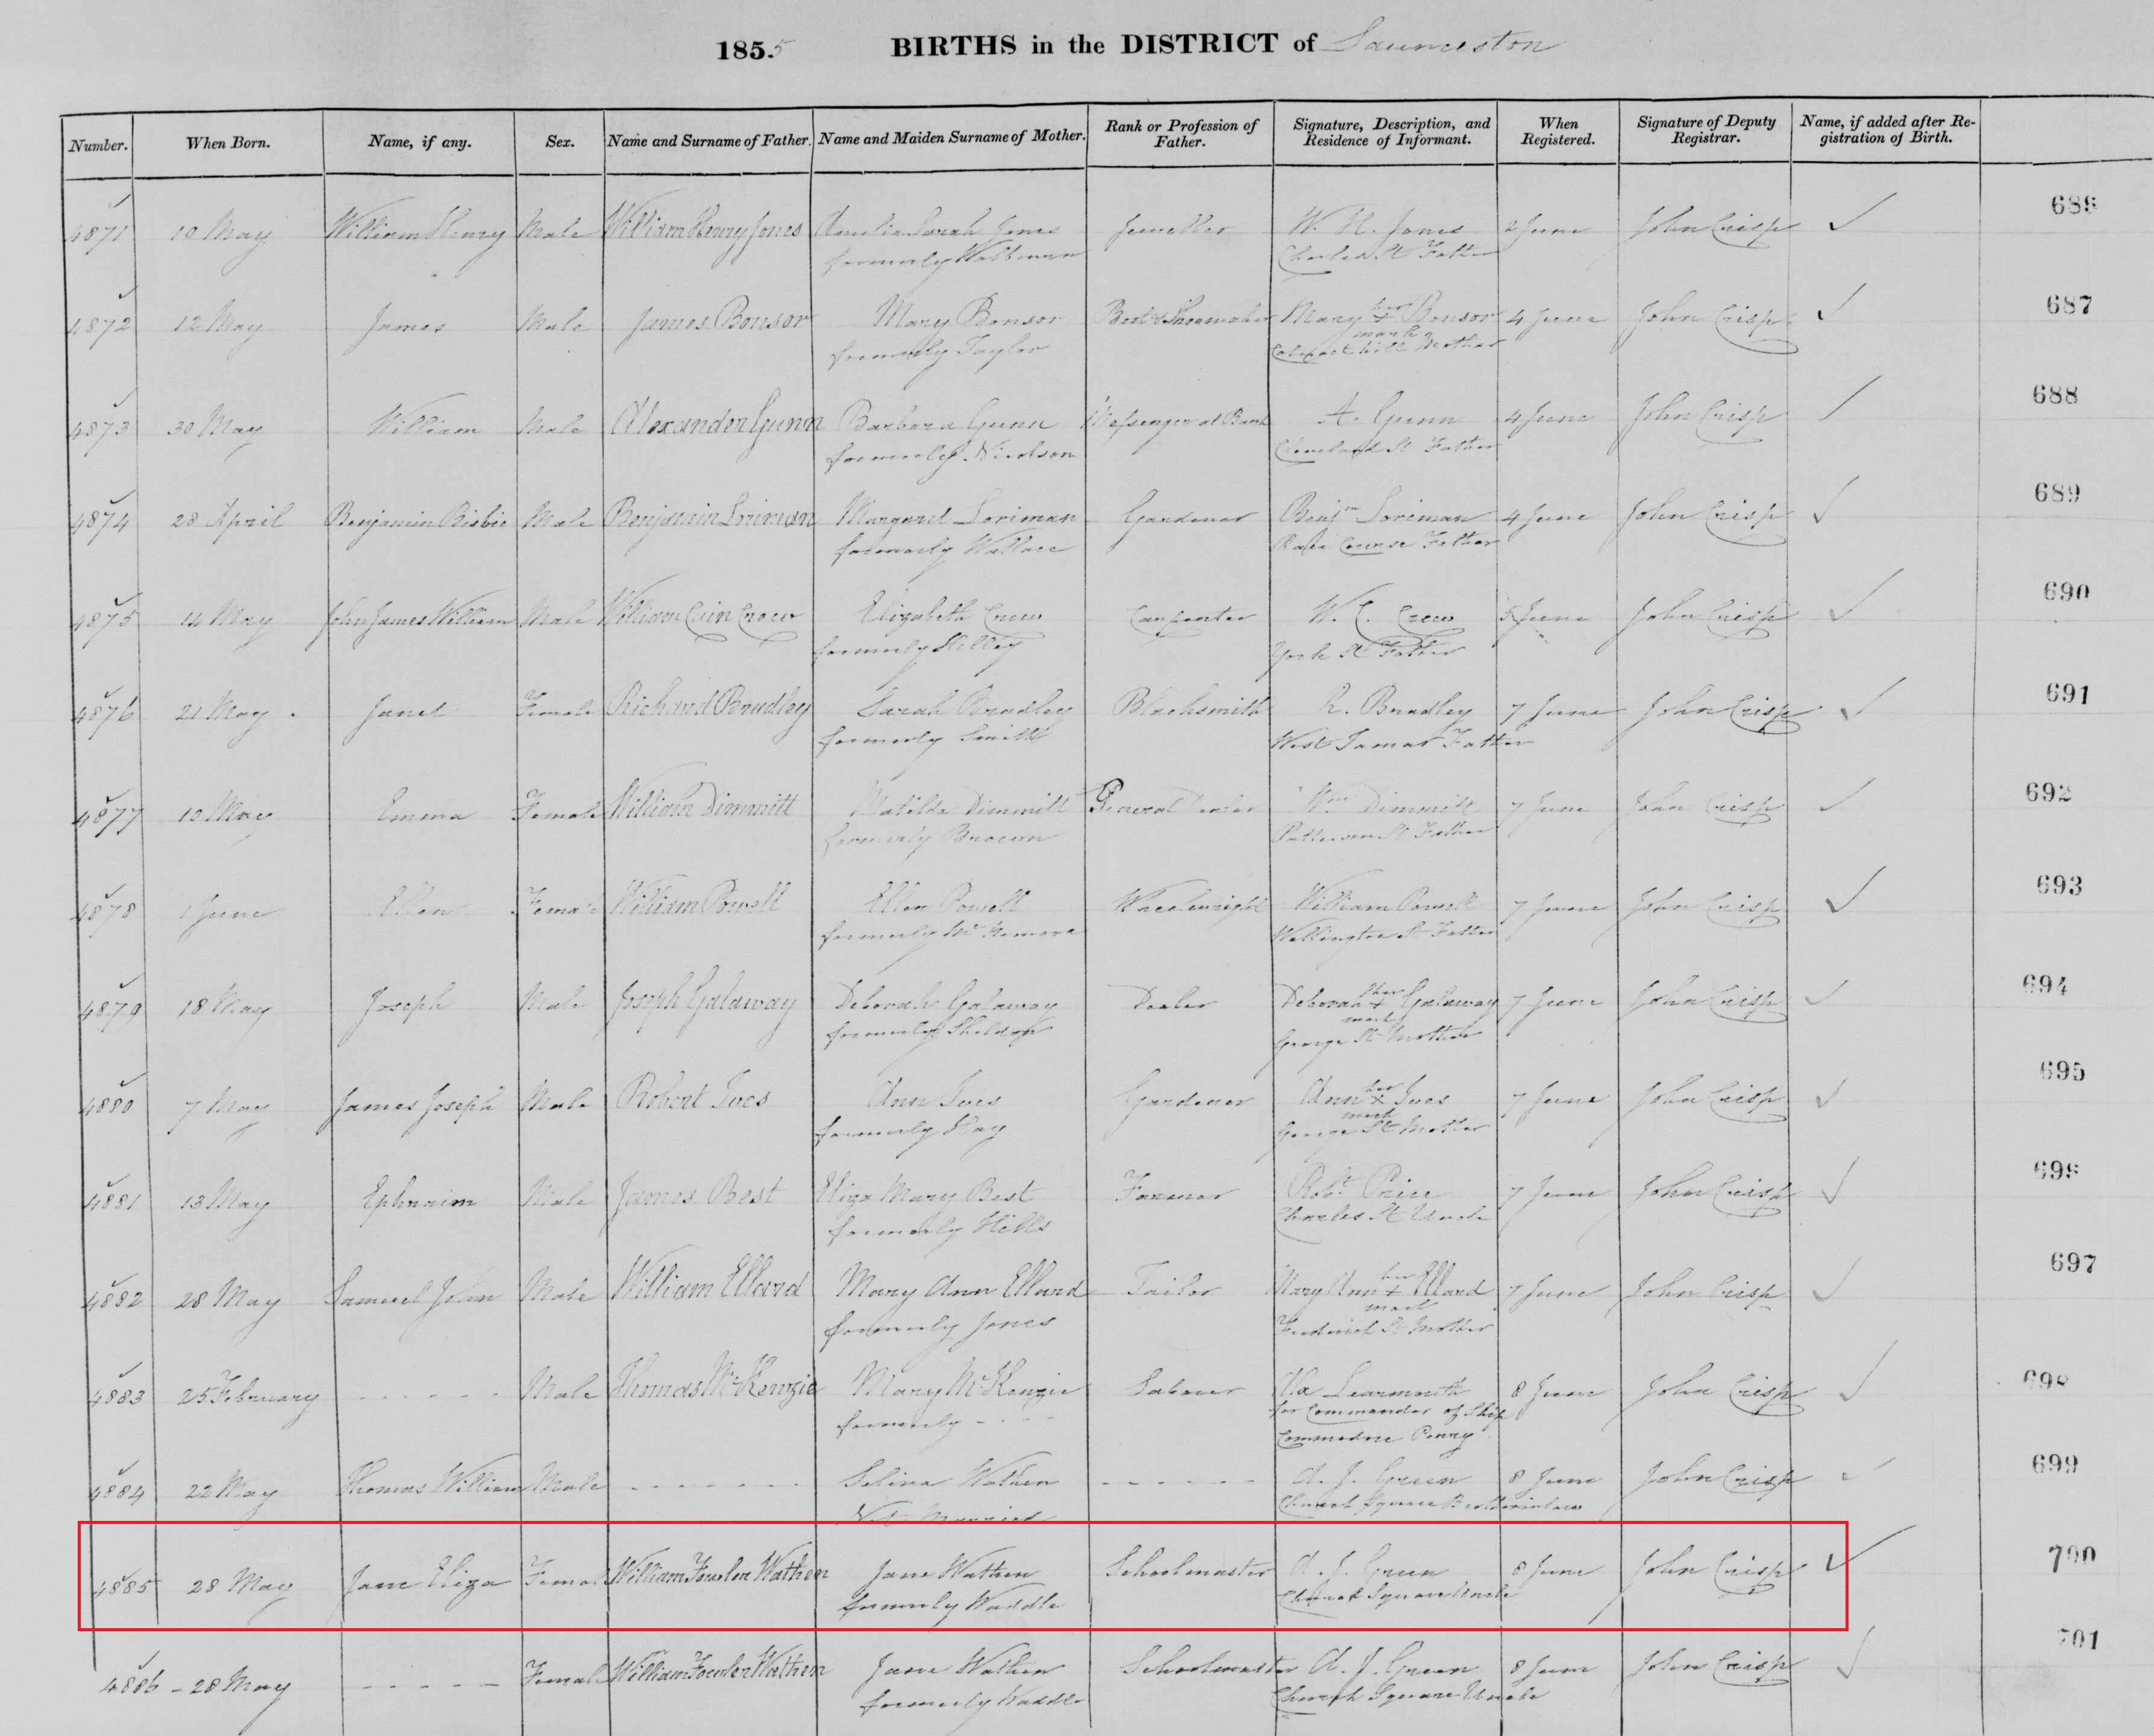 1855 BIRTHS in the DISTRICT of Launceston
Number. When Born. Name, if any. Sex. Name and Surname of Father. Name and Maiden Surname of Mother. Rank or Profession of Father. Signature, Description, and Residence of Informant. When Registered. Signature of Deputy Registrar. Name, if added after Registration of Birth.
4871 10 May William Henry Male William Henry Jones Amelia Sarah Jones Jeweller W. H. Jones 2 June John Crisp ✓ 686
formerly Charles St Father
4872 12 May James Male James Bonsor Mary Bonsor Boot & Shoemaker Mary her + Bonsor 4 June John Crisp ✓ 687
formerly Taylor mark Mother
4873 30 May William Male Alexander Gunn Barbara Gunn Messenger at Bank A. Gunn 4 June John Crisp ✓ 688
formerly Nicolson Father
4874 28 April Benjamin Bisbie Male Benjamin Loriman Margaret Loriman Gardener Benjm Loriman 4 June John Crisp ✓ 689
formerly Wallace Race Course Father
4875 14 May John James William Male William Cain Crew Elizabeth Crew Carpenter W. C. Crew 5 June John Crisp ✓ 690
formerly York St Father
4876 21 May Janet Female Richard Bradley Sarah Bradley Blacksmith R. Bradley 7 June John Crisp ✓ 691
formerly Smith West Tamar Father
4877 10 May Emma Female William Dimmitt Matilda Dimmitt General Dealer Wm Dimmitt 7 June John Crisp ✓ 692
formerly Brown Patterson St Father
4878 1 June Ellen Female William Powell Ellen Powell Wheelwright William Powell 7 June John Crisp ✓ 693
formerly McNamara Wellington St Father
4879 18 May Joseph Male Joseph Galaway Deborah Galaway Dealer Deborah her + Galaway 7 June John Crisp ✓ 694
formerly Sheldon mark George St Mother
4880 7 May James Joseph Male Robert Ives Ann Ives Gardener Ann her x Ives 7 June John Crisp ✓ 695
formerly Hay mark George St Mother
4881 13 May Ephraim Male James Best Eliza Mary Best Farmer Robt. Price 7 June John Crisp ✓ 696
formerly Hills Charles St Uncle
4882 28 May Samuel John Male William Ellard Mary Ann Ellard Tailor Mary Ann her + Ellard 7 June John Crisp ✓ 697
formerly Jones mark Frederick St Mother
4883 25 February - - - - - Male Thomas McKenzie Mary McKenzie Labourer Alx Learmonth 8 June John Crisp ✓ 698
formerly - - - - for Commander of Ship
Commodore Perry
4884 22 May Thomas William Male - - - - - - Selina Wathen - - - - - A. J. Green 8 June John Crisp ✓ 699
Not Married Church Square Brotherinlaw
4885 28 May Jane Eliza Female William Fowler Wathen Jane Wathen Schoolmaster A. J. Green 8 June John Crisp ✓ 700
formerly Waddle Church Square Uncle
4886 - 28 May - - - - - Female William Fowler Wathen Jane Wathen Schoolmaster A. J. Green 8 June John Crisp ✓ 701
formerly Waddle Church Square Uncle